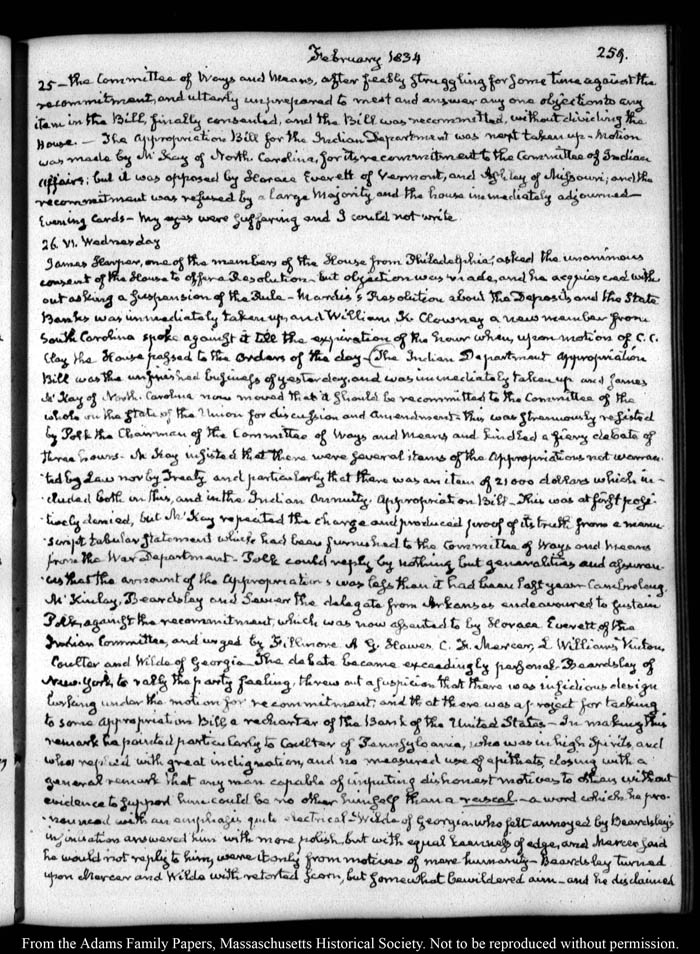 February 1834
259.
25 – the Committee of Ways and Means, after feebly struggling for some time against the
recommitment, and utterly unprepared to meet and answer any one objection to any
item in the Bill, finally consented, and the Bill was recommitted, without dividing the
House. – The Appropriation Bill for the Indian Department was next taken up – Motion
was made by McKay of North Carolina, for its recommitment to the Committee of Indian
Affairs; but it was opposed by Horace Everett of Vermont, and Ashley of Missouri; and the
recommitment was refused by a large Majority and the house immediately adjourned –
Evening Cards – My eyes were suffering and I could not write
26. VI. Wednesday
James Harper, one of the members of the House from Philadelphia, asked the unanimous
consent of the House to offer a Resolution – but objection was made, and he acquiesced with-
out asking a suspension of the Rule – Mardis's Resolution about the Deposits and the State
Banks was immediately taken up, and William K. Clowney a new member from
South Carolina spoke against it till the expiration of the hour when, upon motion of C. C.
Clay the House passed to the Orders of the day – The Indian Department Appropriation
Bill was the unfinished business of yesterday, and was immediately taken up and James
McKay of North Carolina now moved that it should be recommitted to the Committee of the
whole on the State of the Union for discussion and Amendment – this was strenuously resisted
by Polk the Chairman of the Committee of Ways and Means and kindled a fiery debate of
three hours – McKay insisted that there were several items of the Appropriations not warran-
ted by Law nor by Treaty and particularly that there was an item of 21000 dollars which in-
cluded both in this, and in the Indian Annuity Appropriation Bill – This was at first posi-
tively denied, but McKay repeated the charge and produced proof of its truth from a manu-
script tabular statement which had been furnished to the Committee of Ways and Means
from the War Department – Polk could reply by nothing but generalities and assuran-
ces that the amount of the Appropriations was less than it had been last year – Cambreleng,
McKinlay, Beardsley and Sevier the delegate from Arkansas endeavoured to sustain
Polk, against the recommitment, which was now assented to by Horace Everett of the
Indian Committee, and urged by Fillmore A. G. Hawes, C. F. Mercer, L. Williams, Vinton,
Coulter and Wilde of Georgia – The debate became exceedingly personal – Beardsley of
New-York, to rally the party feeling, threw out a suspicion that there was insidious design
lurking under the motion for recommitment; and that there was a project for tacking
to some Appropriation Bill a recharter of the Bank of the United States – In making this
remark he pointed particularly to Coulter of Pennsylvania, who was in high Spirits, and
who replied with great indignation, and no measured use of epithets, closing with a
general remark that any man capable of imputing dishonest motives to others without
evidence to support him could be no other himself than a rascal – a word which he pro-
nounced with an emphasis quite electrical – Wilde of Georgia who felt annoyed by Beardsley's
insinuation answered him with more polish, but with equal keenness of edge, and Mercer said
he would not reply to him, were it only from motives of mere humanity – Beardsley turned
upon Mercer and Wilde with retorted scorn, but somewhat bewildered aim – and he disclaimed
From the Adams Family Papers, Massachusetts Historical Society. Not to be reproduced without permission.